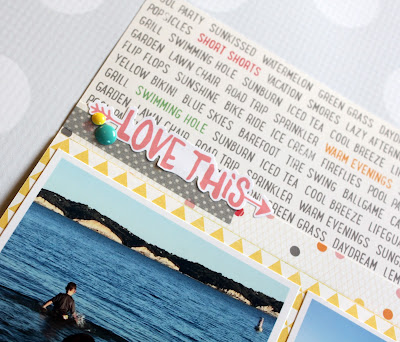 POOL PARTY SUNKISSED WATERMELON GREEN GRASS
POPSICLES SHORT SHORTS VACATION SMORES LAZY
GRILL SWIMMING HOLE SUNBURN ICED TEA COOL BREEZE
GARDEN LAWN CHAIR ROAD TRIP SPRINKLER WARM EVENINGS
FLIP FLOPS SUNSHINE BIKE RIDE ICE CREAM FIREFLIES POOL
YELLOW BIKINI BLUE SKIES BAREFOOT TIRE SWING BALLGAME
GRILL SWIMMING HOLE SUNBURN ICED TEA COOL BREEZE
GARDEN LAWN CHAIR ROAD TRIP SPRINKLER WARM EVENINGS
GREEN GRASS DAYDREAM
LOVE THIS